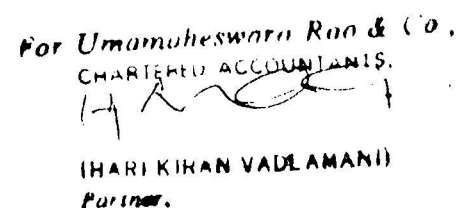 For Umamaheswara Rao & Co,
CHARTERED ACCOUNTANTS.
(HARI KIRAN VADLAMANI)
Partner.